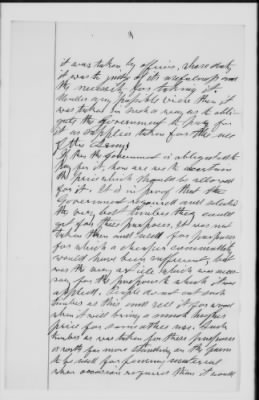 it was taken by officers, whose duty
it was to judge of its usefulness and
the necessity for taking it.
Under any possible view then it
was taken in such a way as to obli-
gate the Government to pay for
it as supplies taken for the use
of the Army.
If then the Government is obligated to
pay for it, how are we to ascertain
the price which should be allowed
for it. It is in proof that the
Government required and selected
the very best timber they could
get for these purposes, it was not
taken then and used for purposes
for which a cheaper commodity
would have been sufficient, but
was the very article which was neces-
sary for the purpose to which it was
applied. People do not sell
timber as this and sell it for wood
when it will bring a much higher
price for some other use. Such
timber as was taken for these purposes
is worth far more standing on the farm
to be used for fencing material
when occasion requires than it would